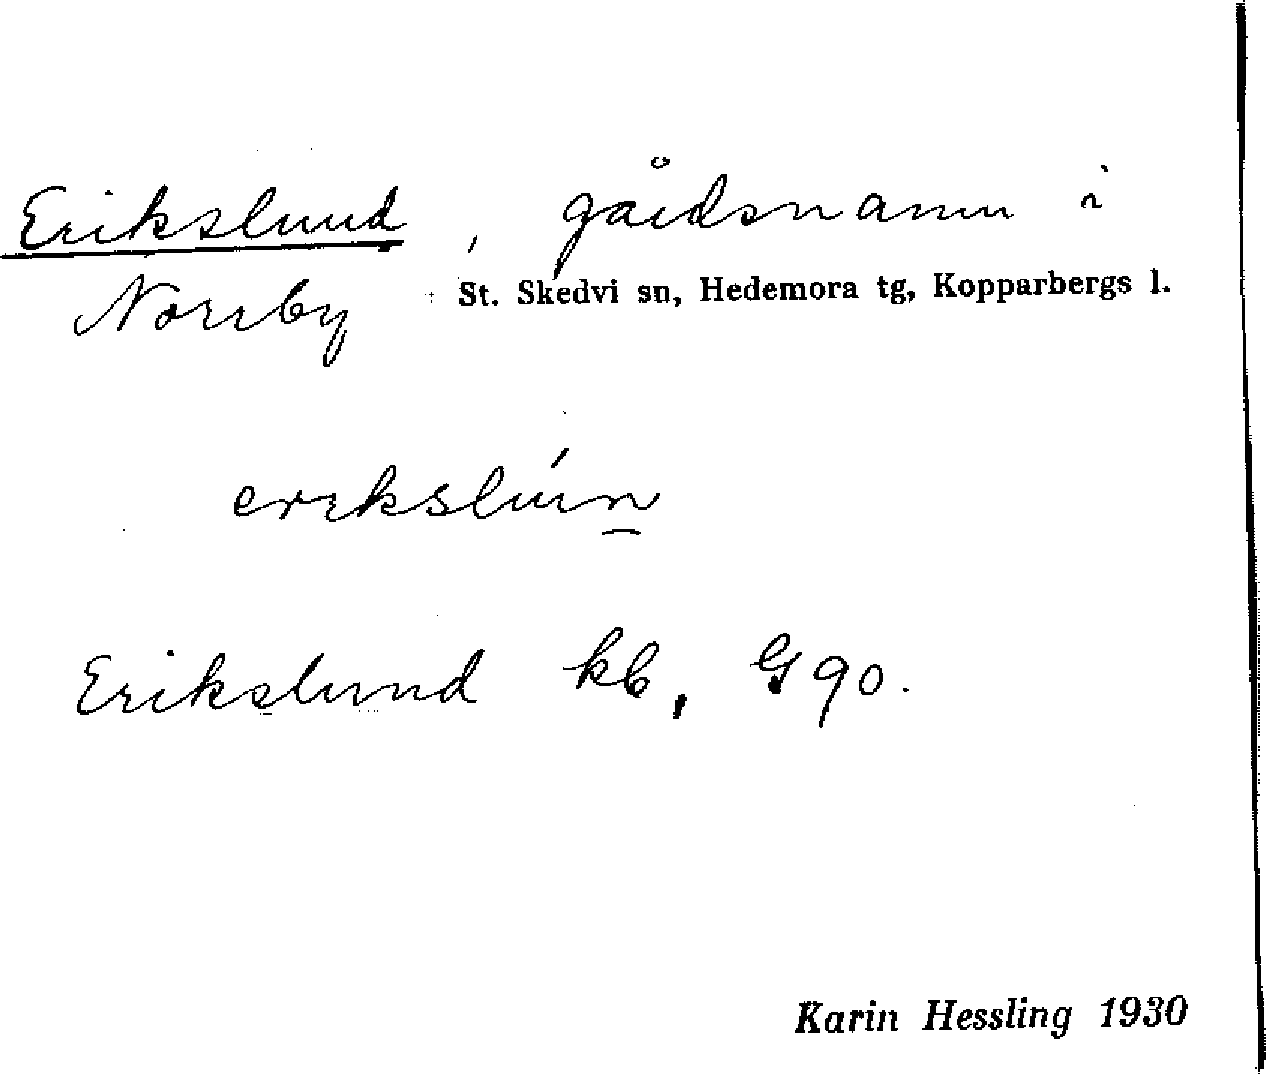 Erikslund, gårdsnamn i
Norrby St. Skedvi sn, Hedemora tg, Kopparbergs l.
erikslún̲
Erikslund kb, G 90.
Karin Hessling 1930